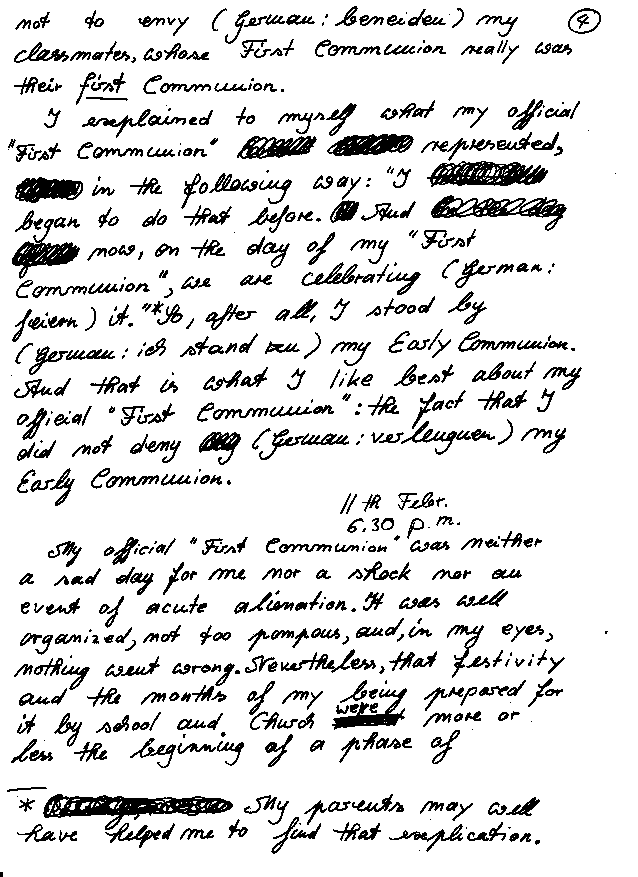 not to envy (German: beneiden) my 4
classmates, whose First Communion really was
their first Communion.
I explained to myself what my official
"First Communion" represented,
in the following way: "I
began to do that before. And
now, on the day of my "First
Communion", we are celebrating (German:
feiern) it."* So, after all, I stood by
(German: ich stand zu) my Early Communion.
And that is what I like best about my
official "First Communion": the fact that I
did not deny (German: verleugnen) my
Early Communion.
11th Febr.
6.30 p.m.
My official "First Communion" was neither
a sad day for me nor a shock nor an
event of acute alienation. It was well
organized, not too pompous, and, in my eyes,
nothing went wrong. Nevertheless, that festivity
and the months of my being prepared for
it by school and Church were more or
less the beginning of a phase of
* My parents may well
have helped me to find that explication.